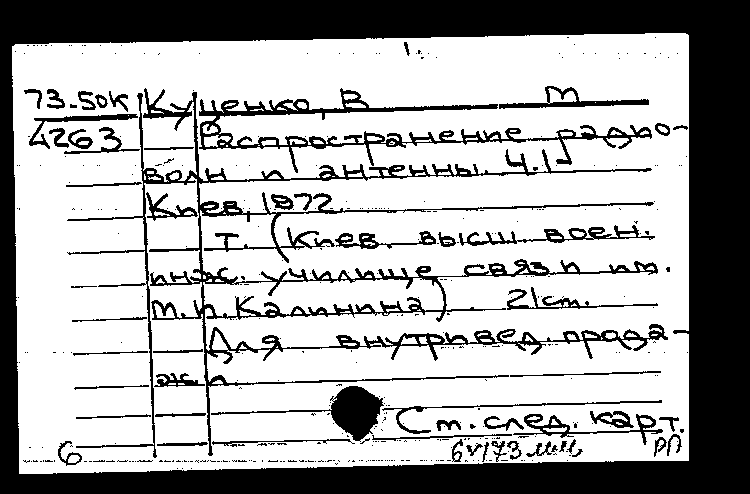 1.
73-50K Куценко, В М
4263 Распространение радио-
волн и антенны. Ч.1-
Киев, 1972.
т. (Киев. высш воен.
инж. училище связи им.
М.И. Калинина). 21 см.
Для внутривед. прода-
жи.
См. след. карт.
6 6VI73 РП